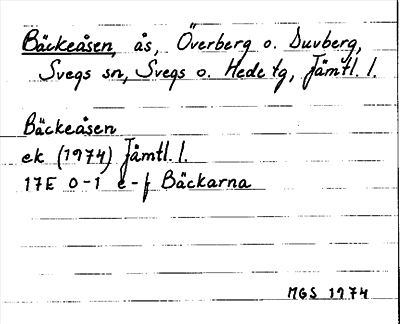 Bäckeåsen, ås, Överberg o. Duvberg,
Svegs sn, Svegs o. Hede tg, Jämtl. l.
Bäckeåsen
ek (1974) Jämtl. l.
17E 0-1 e-f Bäckarna
MGS 1974